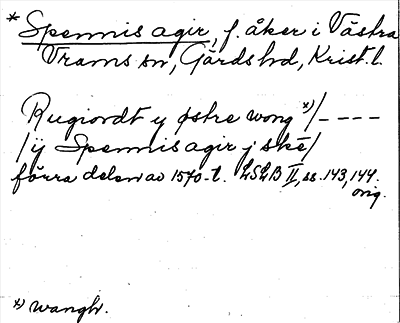 * Spennis agir, f. åker i Västra
Vrams sn, Gärds hd, Krist. l.
Rugiordt y østre wong x)/----
/ij Spennis agir j skê/
förra delen av 1570-t. LSLB II, ss. 143, 144.
orig.
x) wangh.